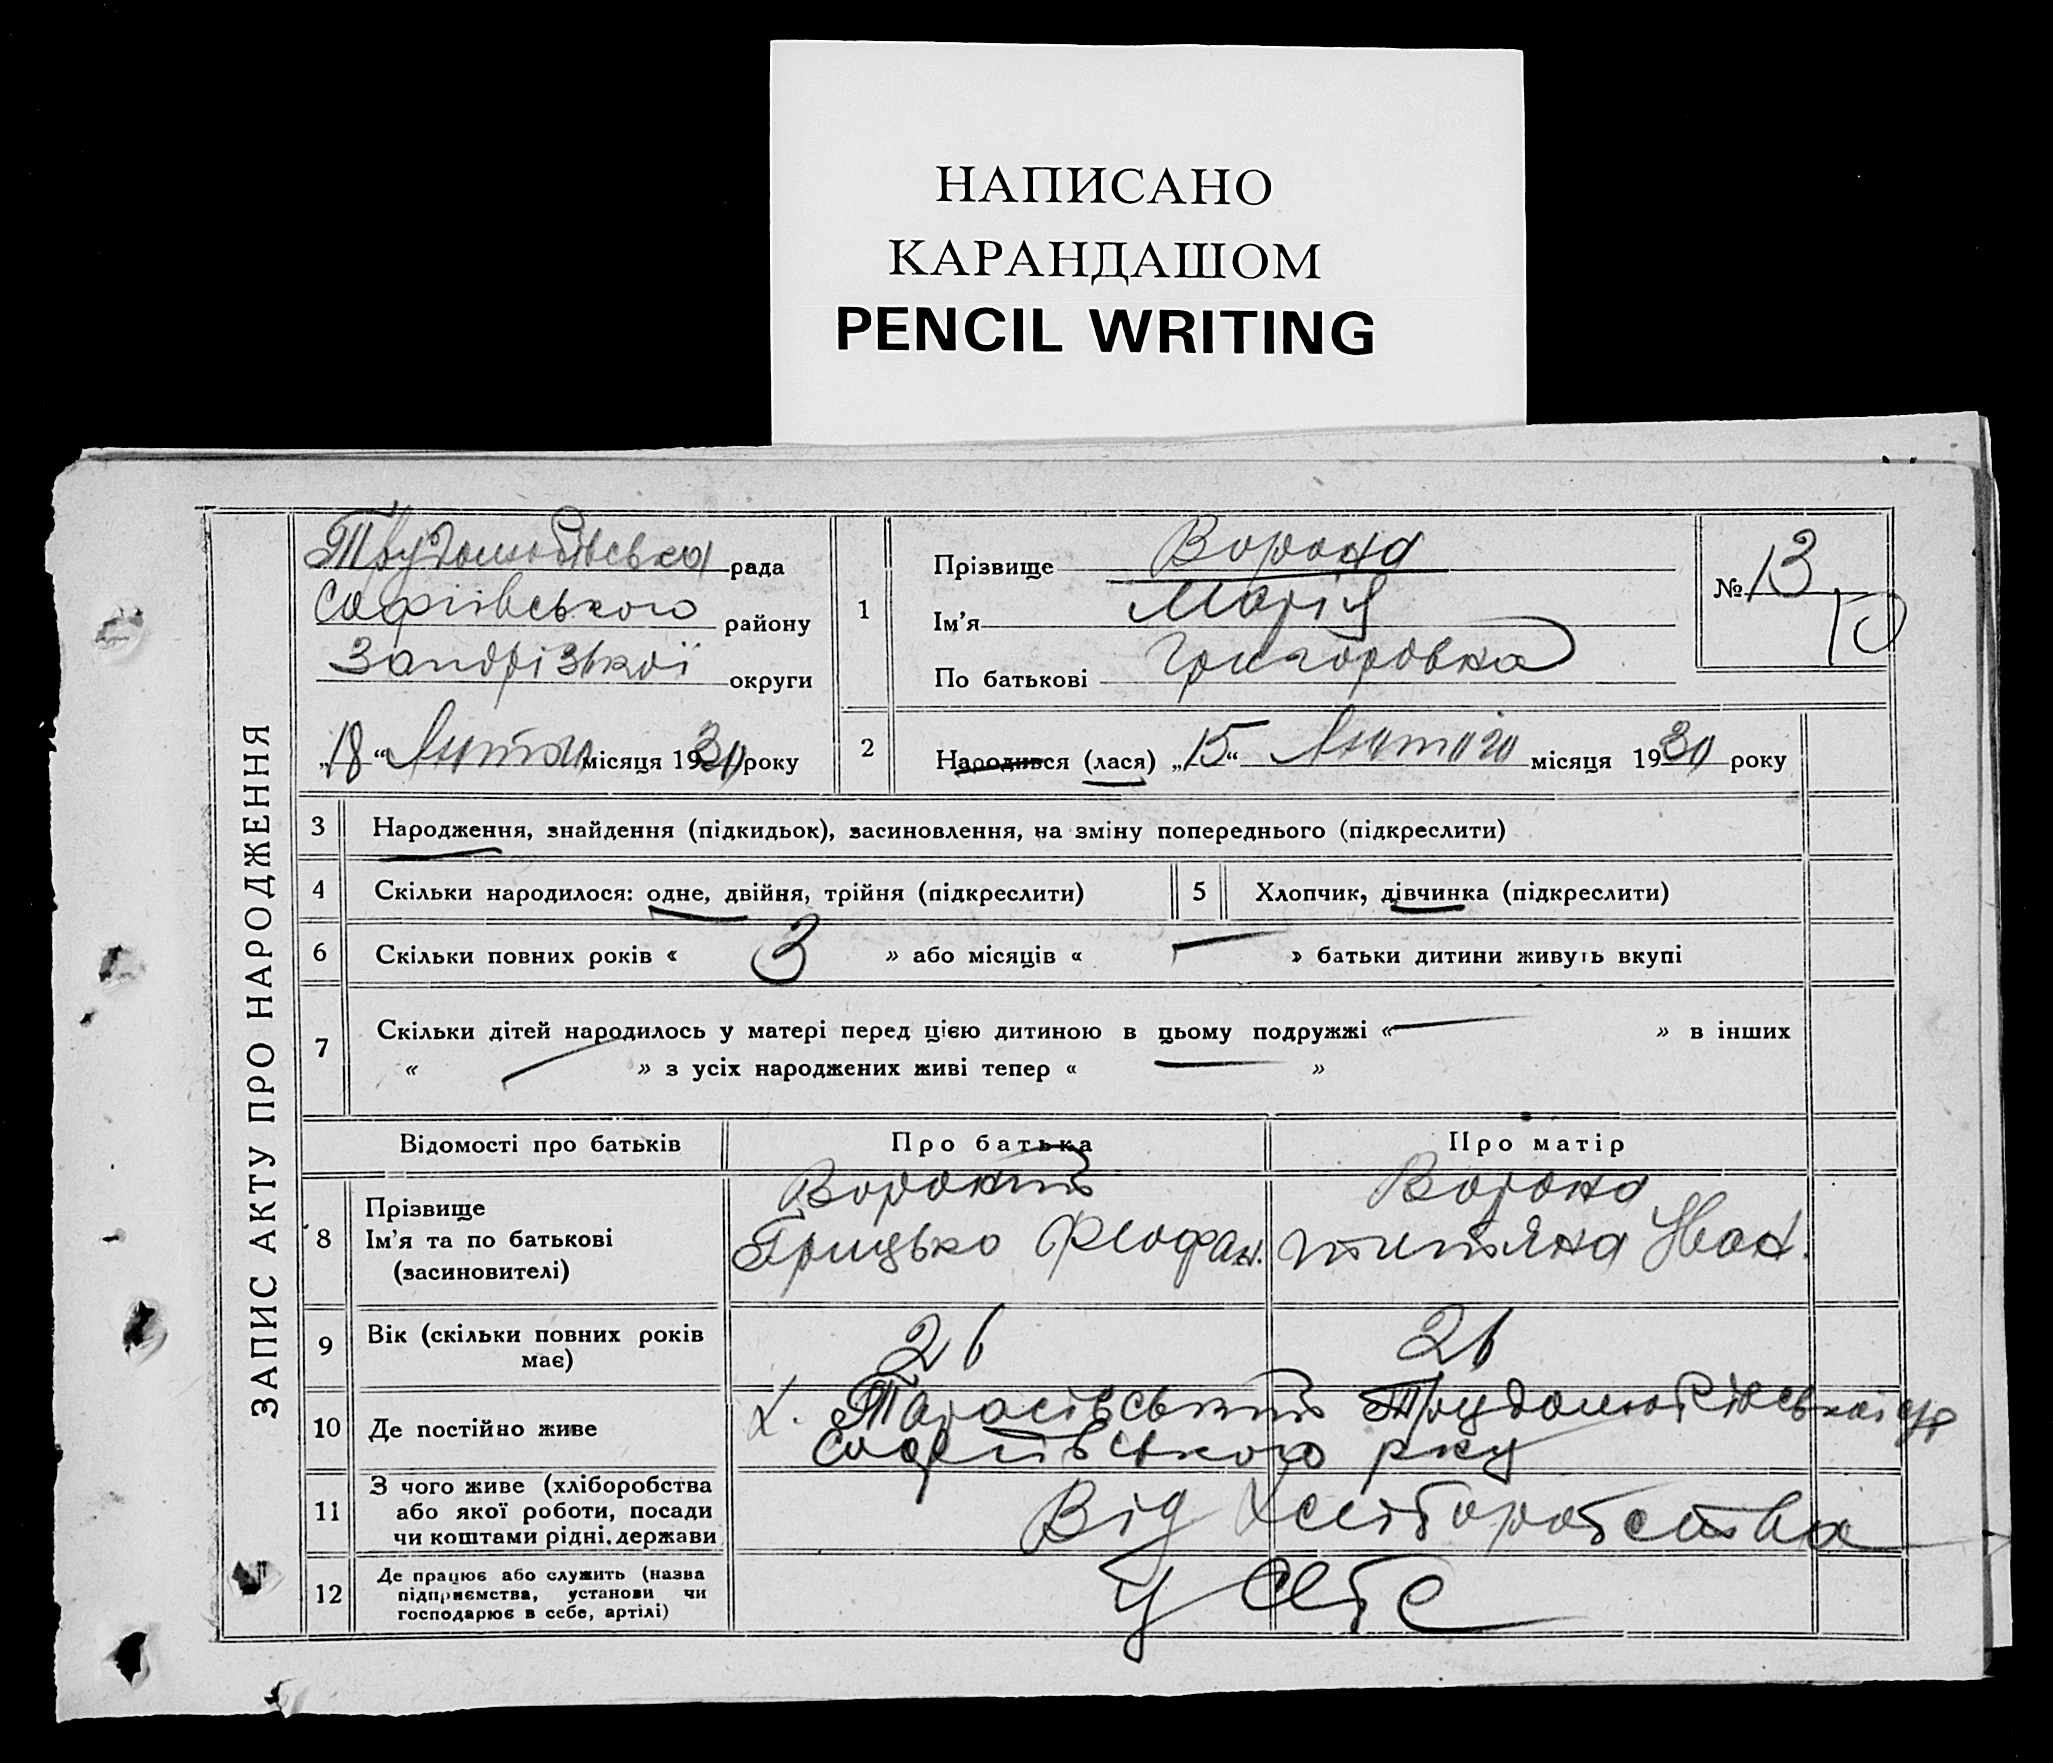 НАПИСАНО
КАРАНДАШОМ
PENCIL WRITING
ЗАПИС АКТУ ПРО НАРОДЖЕННЯ
Трудолюбівська рада
Софіївського району
Запорізької округи
„18“ Лютого місяця 1930 року
1 Прізвище Ворона
Ім'я Марія
По батькові Григоровна
№ 13
10
2 Народився (лася) „15“ Лютого місяця 1930 року
3 Народження, знайдення (підкидьок), засиновлення, на зміну попереднього (підкреслити)
4 Скільки народилося: одне, двійня, трійня (підкреслити)
5 Хлопчик, дівчинка (підкреслити)
6 Скільки повних років « 3 » або місяців « — » батьки дитини живуть вкупі
7 Скільки дітей народилось у матері перед цією дитиною в цьому подружжі « — » в інших
« — » з усіх народжених живі тепер « — »
Відомості про батьків Про батька Про матір
8 Прізвище
Ім'я та по батькові
(засиновителі)
Ворона
Грицько Феофан.
Ворона
Титяна Иван.
9 Вік (скільки повних років
має)
26 26
10 Де постійно живе
х. Тарасівський Трудолюбівської с/р
Софіївського р-ну
11 З чого живе (хліборобства
або якої роботи, посади
чи коштами рідні, держави
Від Хліборобства
12 Де працює або служить (назва
підприємства, установи чи
господарює в себе, артілі)
У себе